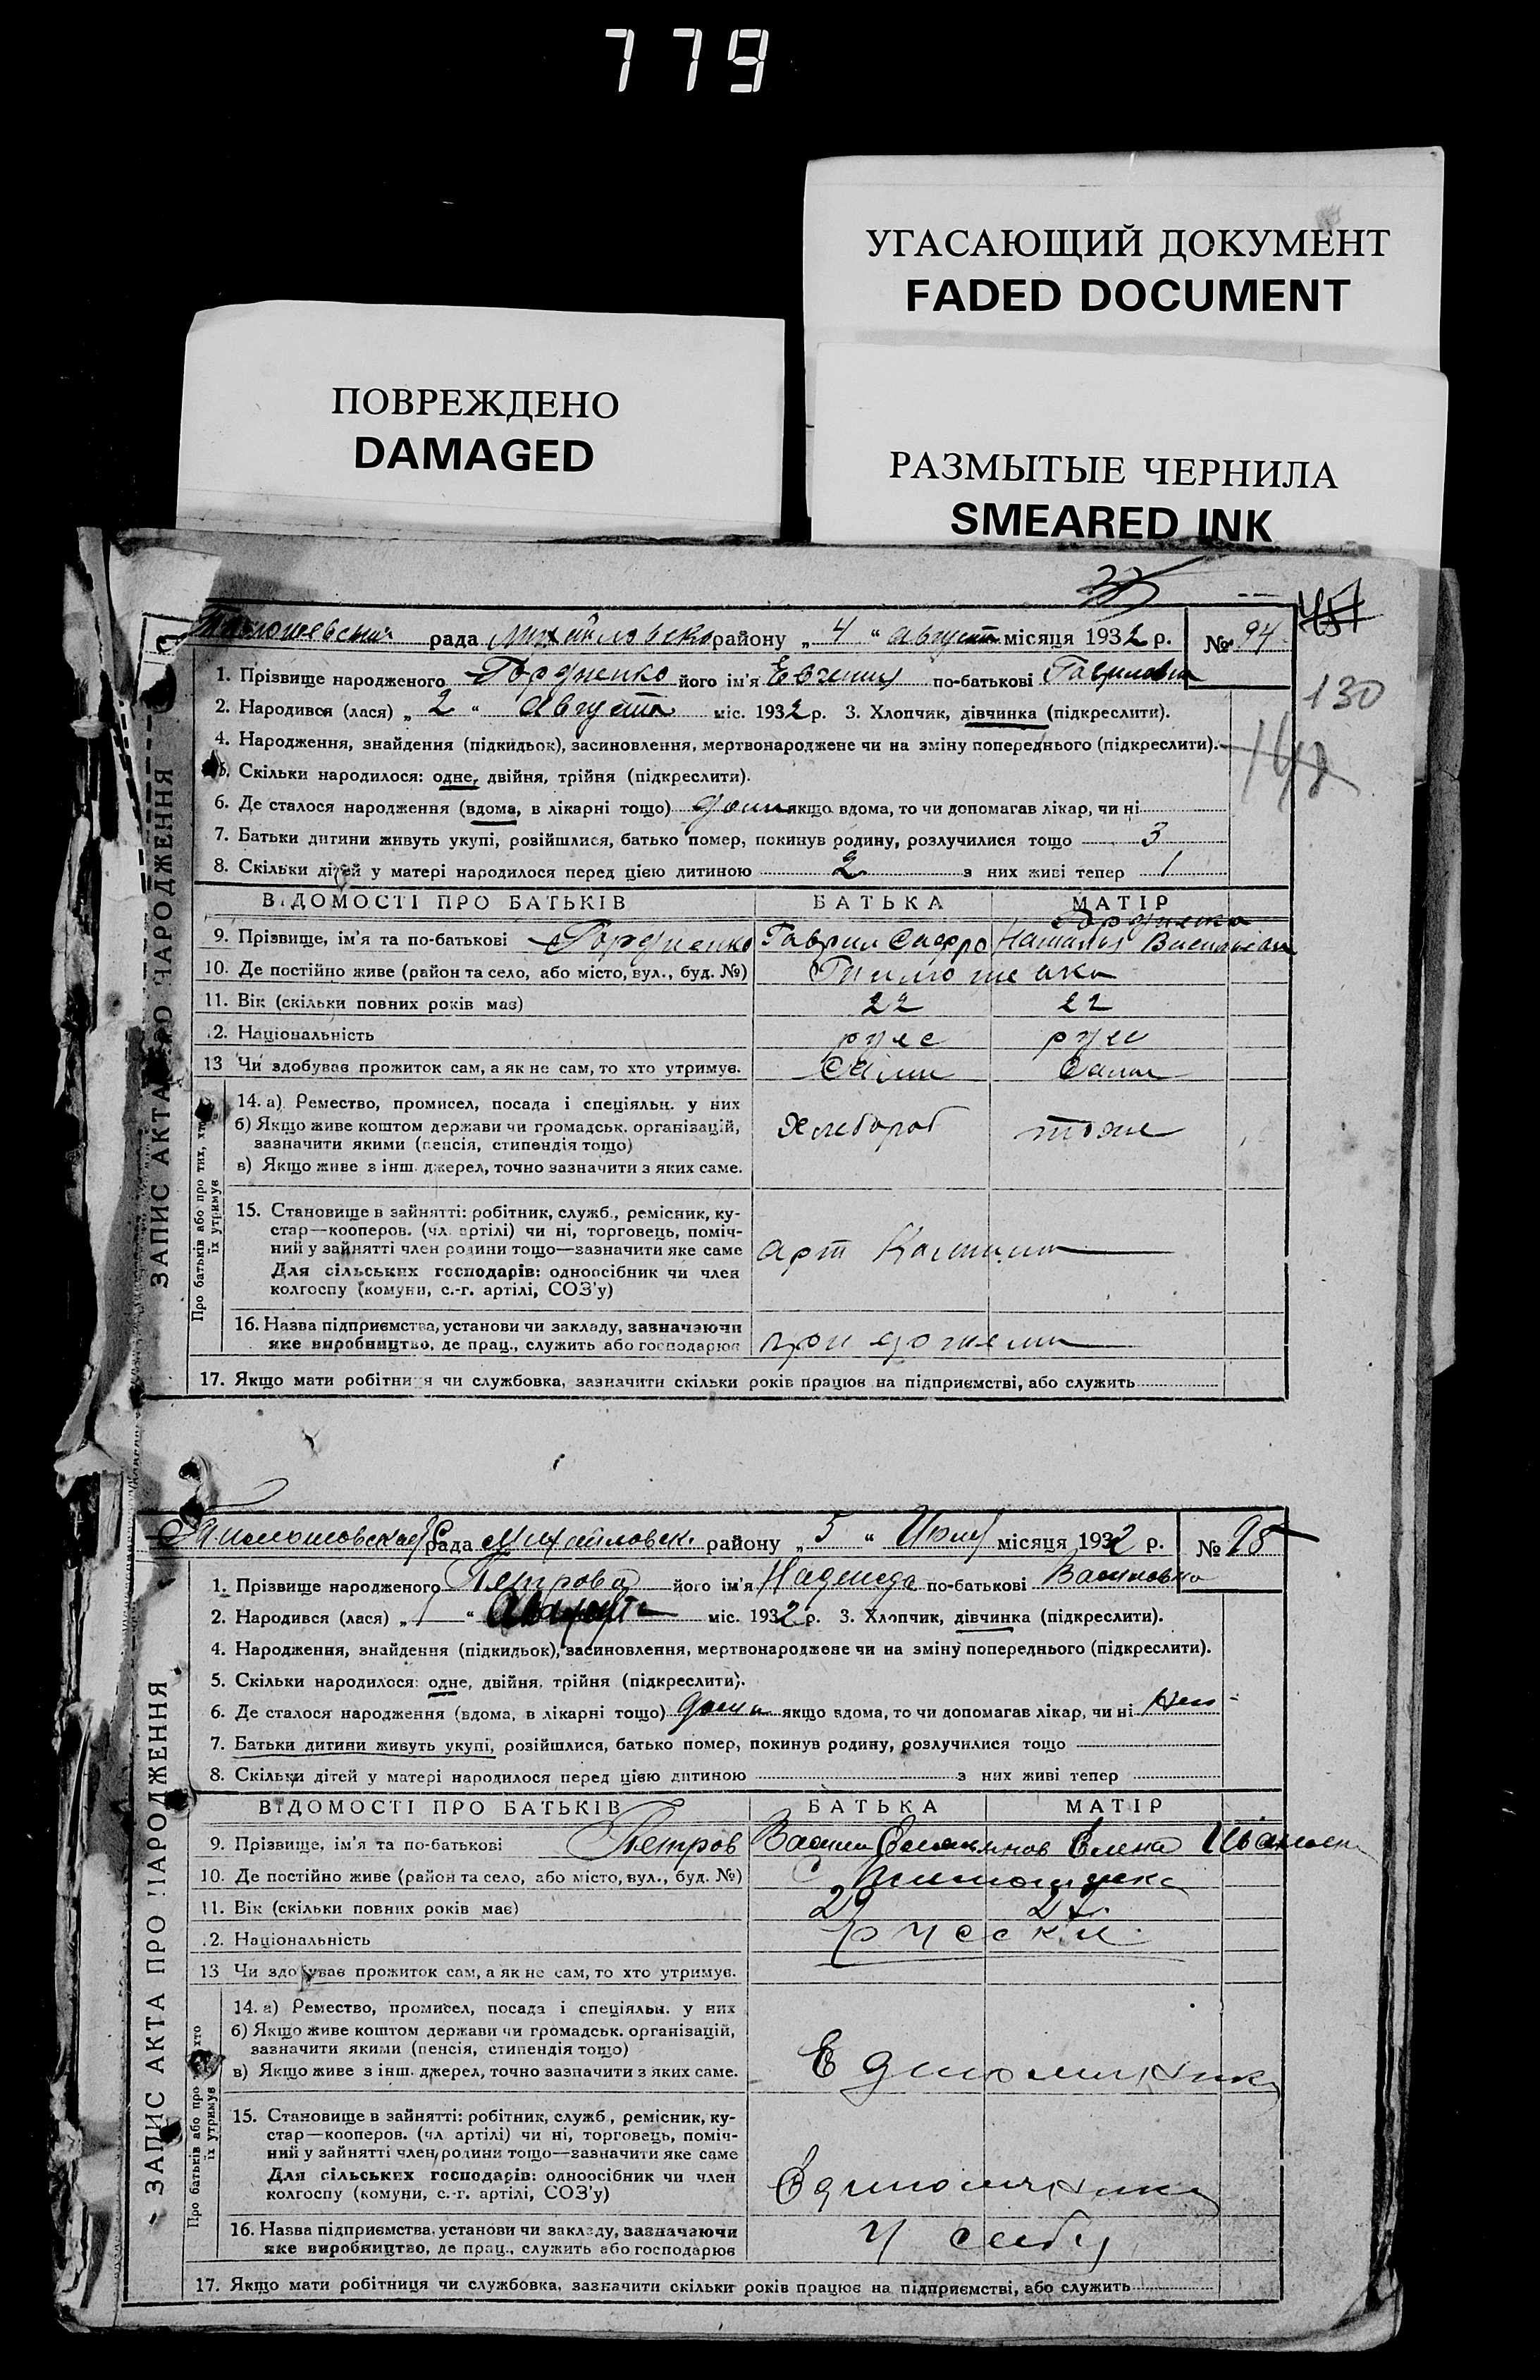 779
УГАСАЮЩИЙ ДОКУМЕНТ
FADED DOCUMENT
ПОВРЕЖДЕНО
DAMAGED
РАЗМЫТЫЕ ЧЕРНИЛА
SMEARED INK
рада района „ 4 “ август місяця 1932 р. № 94
130
ЗАПИС АКТА ПРО НАРОДЖЕННЯ
1. Прізвище народженого Гордиенко його ім'я Евгения по-батькові Гавриловна
2. Народився (лася) „ 2 “ Августа міс. 1932 р. 3. Хлопчик, дівчинка (підкреслити).
4. Народження, знайдення (підкидьок), засиновлення, мертвонароджене чи на зміну попереднього (підкреслити).
5. Скільки народилося: одне, двійня, трійня (підкреслити).
6. Де сталося народження (вдома, в лікарні тощо) дома якщо вдома, то чи допомагав лікар, чи ні
7. Батьки дитини живуть укупі, розійшлися, батько помер, покинув родину, розлучилися тощо 3
8. Скільки дітей у матері народилося перед цією дитиною 2 з них живі тепер 1
ВІДОМОСТІ ПРО БАТЬКІВ БАТЬКА МАТІР
9. Прізвище, ім'я та по-батькові Гордиенко Гаврил Гордиенко Наталия
10. Де постійно живе (район та село, або місто, вул., буд. №)
11. Вік (скільки повних років має) 22 22
12. Національність рус рус
13 Чи здобуває прожиток сам, а як не сам, то хто утримує. Сами Сами
Про батьків або про тих, хто їх утримує
14. а) Ремество, промисел, посада і спеціяльн. у них
б) Якщо живе коштом держави чи громадськ. організацій,
зазначити якими (пенсія, стипендія тощо) Хлебороб тоже
в) Якщо живе з інш. джерел, точно зазначити з яких саме.
15. Становище в зайнятті: робітник, служб., ремісник, ку-
стар—кооперов. (чл. артілі) чи ні, торговець, поміч-
ний у зайнятті член родини тощо—зазначити яке саме арт
Для сільських господарів: одноосібник чи член
колгоспу (комуни, с.-г. артілі, СОЗ'у)
16. Назва підприємства, установи чи закладу, зазначаючи
яке виробництво, де прац., служить або господарює
17. Якщо мати робітниця чи службовка, зазначити скільки років працює на підприємстві, або служить
рада Михайловск. району „ 5 “ місяця 1932 р. № 95
ЗАПИС АКТА ПРО НАРОДЖЕННЯ
1. Прізвище народженого Петрова його ім'я Надежда по-батькові
2. Народився (лася) „ 1 “ Августа міс. 1932 р. 3. Хлопчик, дівчинка (підкреслити).
4. Народження, знайдення (підкидьок), засиновлення, мертвонароджене чи на зміну попереднього (підкреслити).
5. Скільки народилося: одне, двійня, трійня (підкреслити).
6. Де сталося народження (вдома, в лікарні тощо) дома якщо вдома, то чи допомагав лікар, чи ні нет
7. Батьки дитини живуть укупі, розійшлися, батько помер, покинув родину, розлучилися тощо
8. Скільки дітей у матері народилося перед цією дитиною з них живі тепер
ВІДОМОСТІ ПРО БАТЬКІВ БАТЬКА МАТІР
9. Прізвище, ім'я та по-батькові Петров Елена
10. Де постійно живе (район та село, або місто, вул., буд. №)
11. Вік (скільки повних років має) 29
12. Національність русски
13 Чи здобуває прожиток сам, а як не сам, то хто утримує.
Про батьків або про тих, хто їх утримує
14. а) Ремество, промисел, посада і спеціяльн. у них
б) Якщо живе коштом держави чи громадськ. організацій,
зазначити якими (пенсія, стипендія тощо)
в) Якщо живе з інш. джерел, точно зазначити з яких саме.
15. Становище в зайнятті: робітник, служб., ремісник, ку-
стар—кооперов. (чл. артілі) чи ні, торговець, поміч-
ний у зайнятті член родини тощо—зазначити яке саме
Для сільських господарів: одноосібник чи член
колгоспу (комуни, с.-г. артілі, СОЗ'у)
16. Назва підприємства, установи чи закладу, зазначаючи
яке виробництво, де прац., служить або господарює У себя
17. Якщо мати робітниця чи службовка, зазначити скільки років працює на підприємстві, або служить